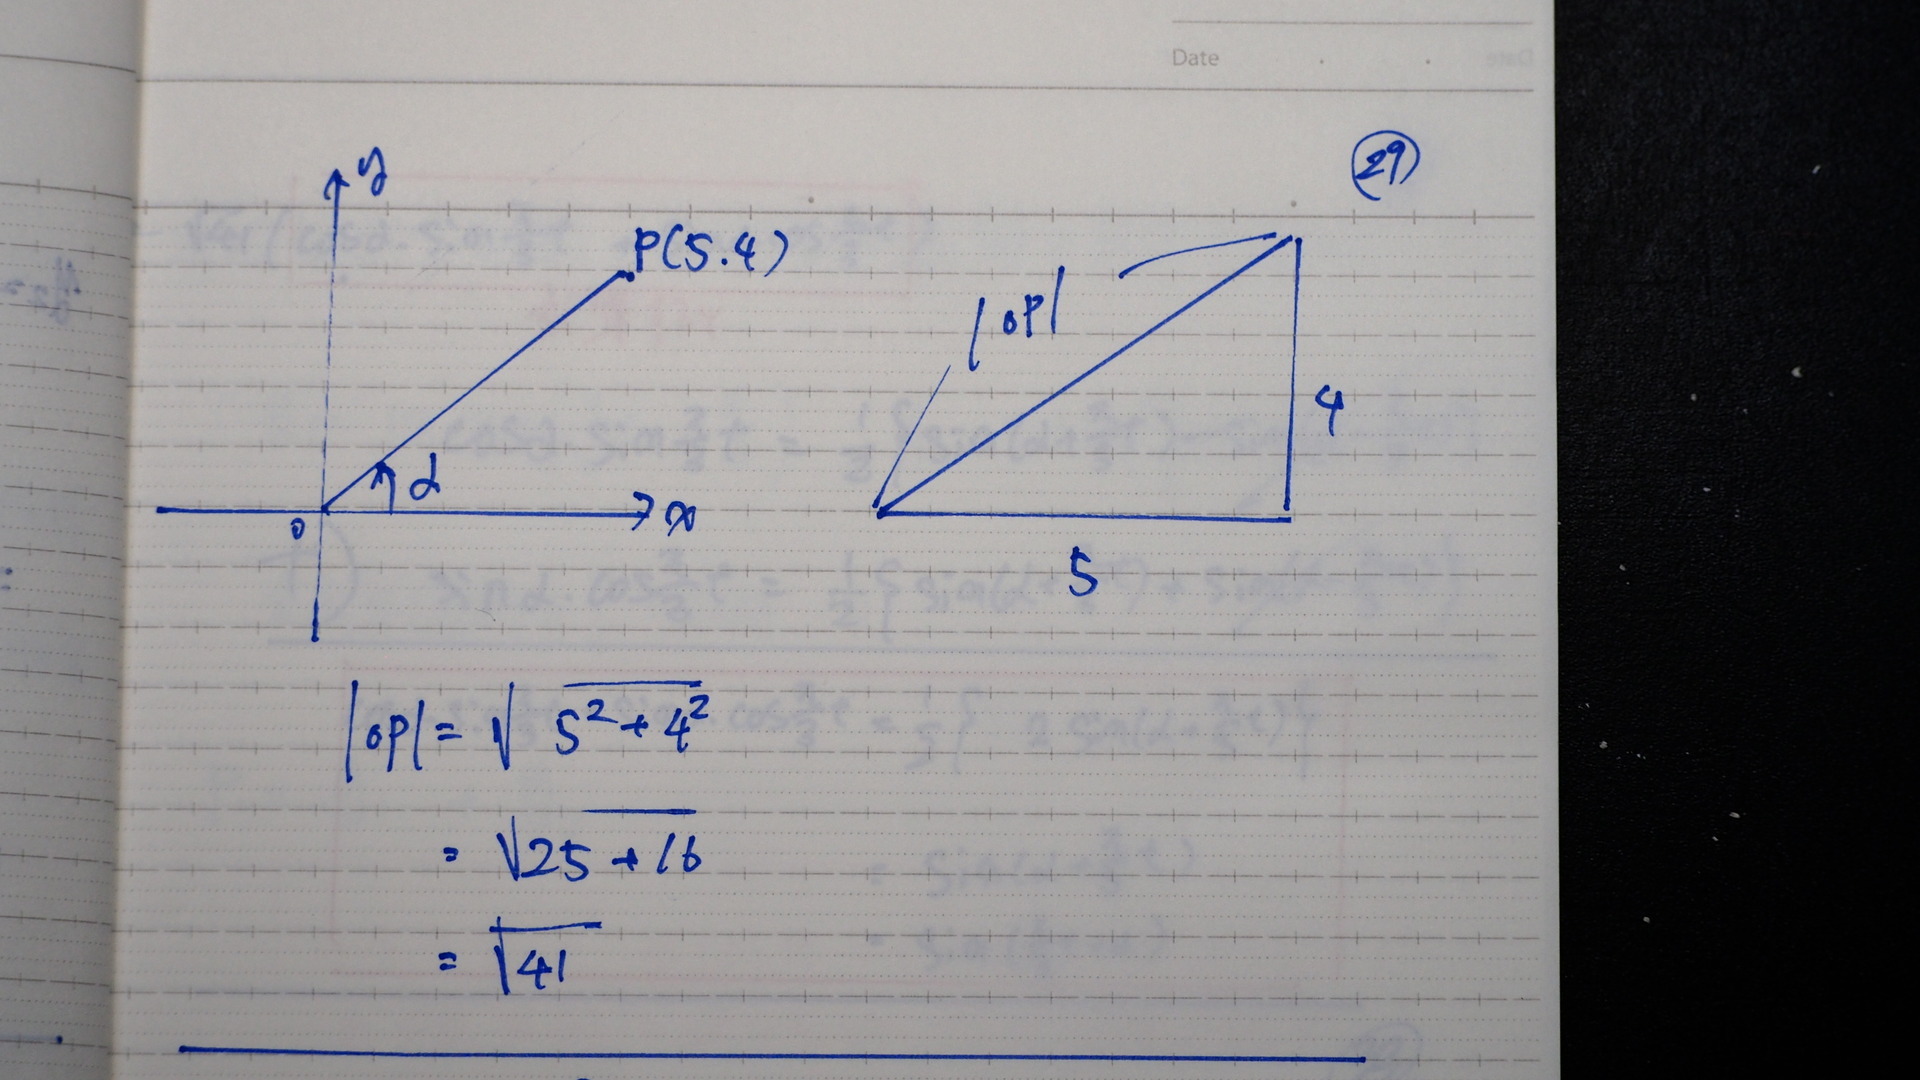 Date
29
y
P(5.4)
|OP|
4
α
x
0
5
|OP| = √5²+4²
= √25+16
= √41